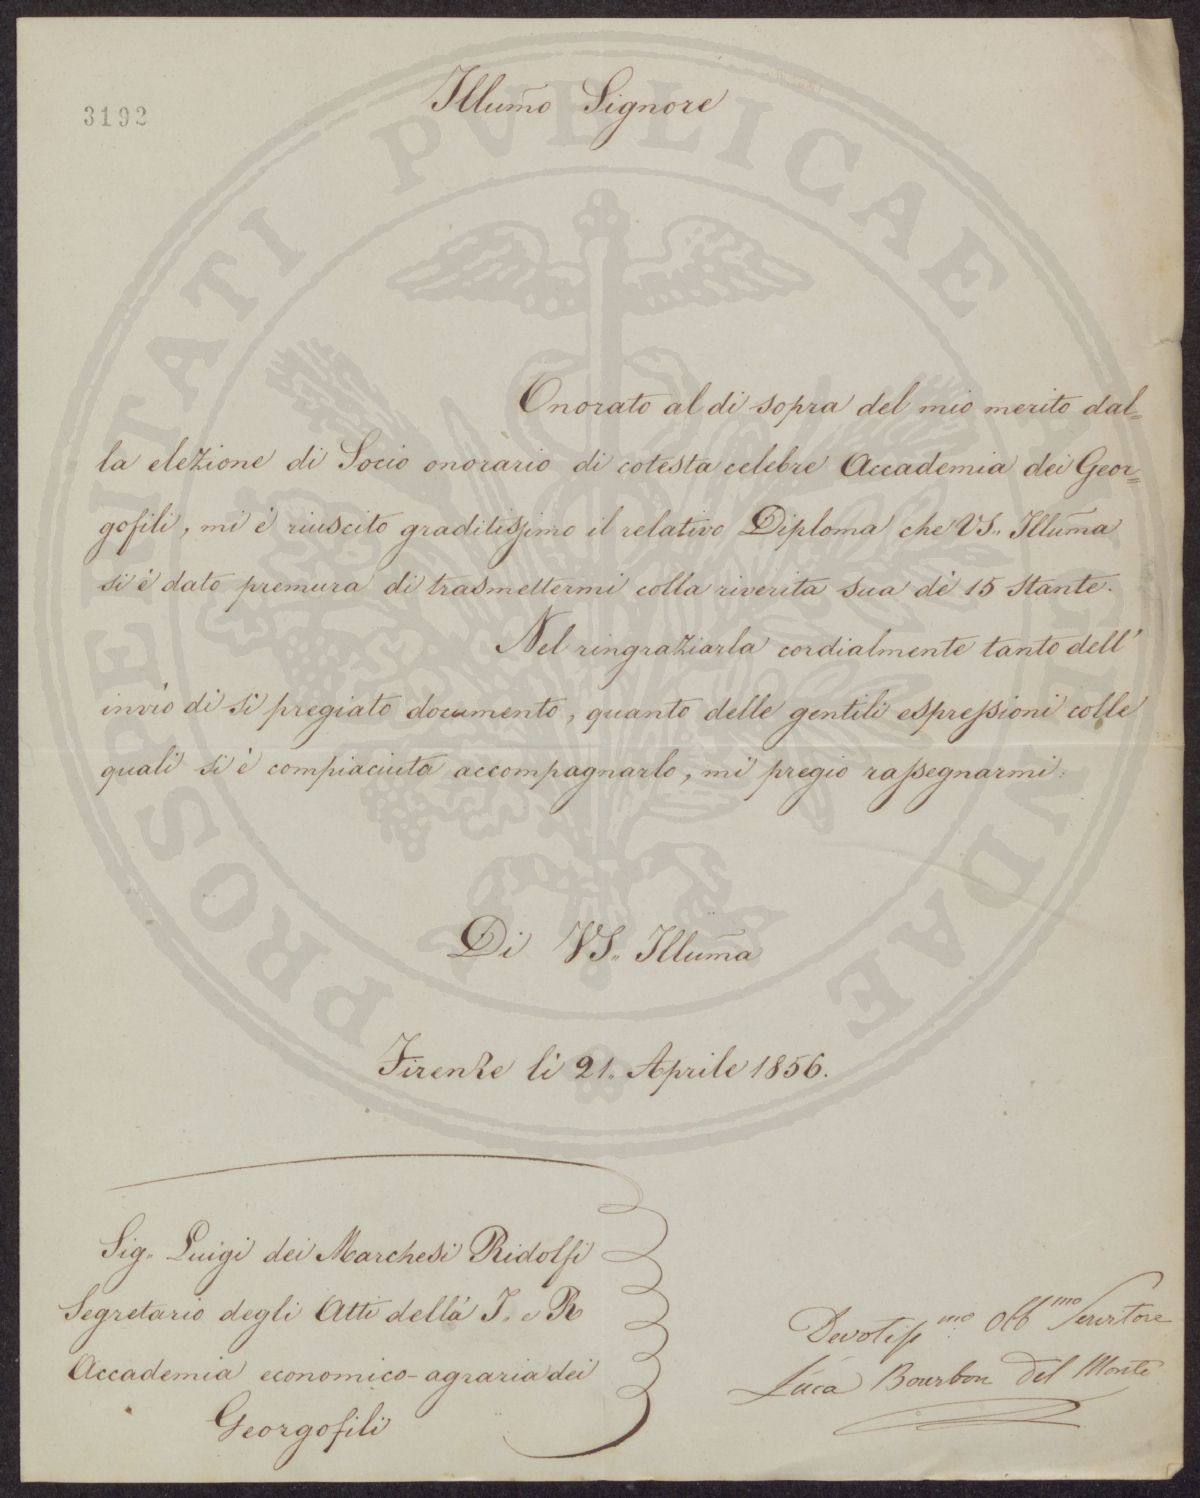 3192
Illum̃o Signore
Onorato al di sopra del mio merito dal=
la elezione di Socio onorario di cotesta celebre Accademia dei Geor=
gofili, mi è riuscito graditissimo il relativo Diploma che VS. Illum̃a
si è dato premura di trasmettermi colla riverita sua de' 15 stante.
Nel ringraziarla cordialmente tanto dell'
invio di sì pregiato documento, quanto delle gentili espressioni colle
quali si è compiaciuta accompagnarlo, mi pregio rassegnarmi:
Di VS. Illum̃a
Firenze li 21. Aprile 1856.
Sig. Luigi dei Marchesi Ridolfi
Segretario degli Atti della I. e R
Accademia economico-agraria dei
Georgofili
Devotiss mo Obb mo Servitore
Luca Bourbon Del Monte
PROSPERITATI PVBLICAE AVGENDAE